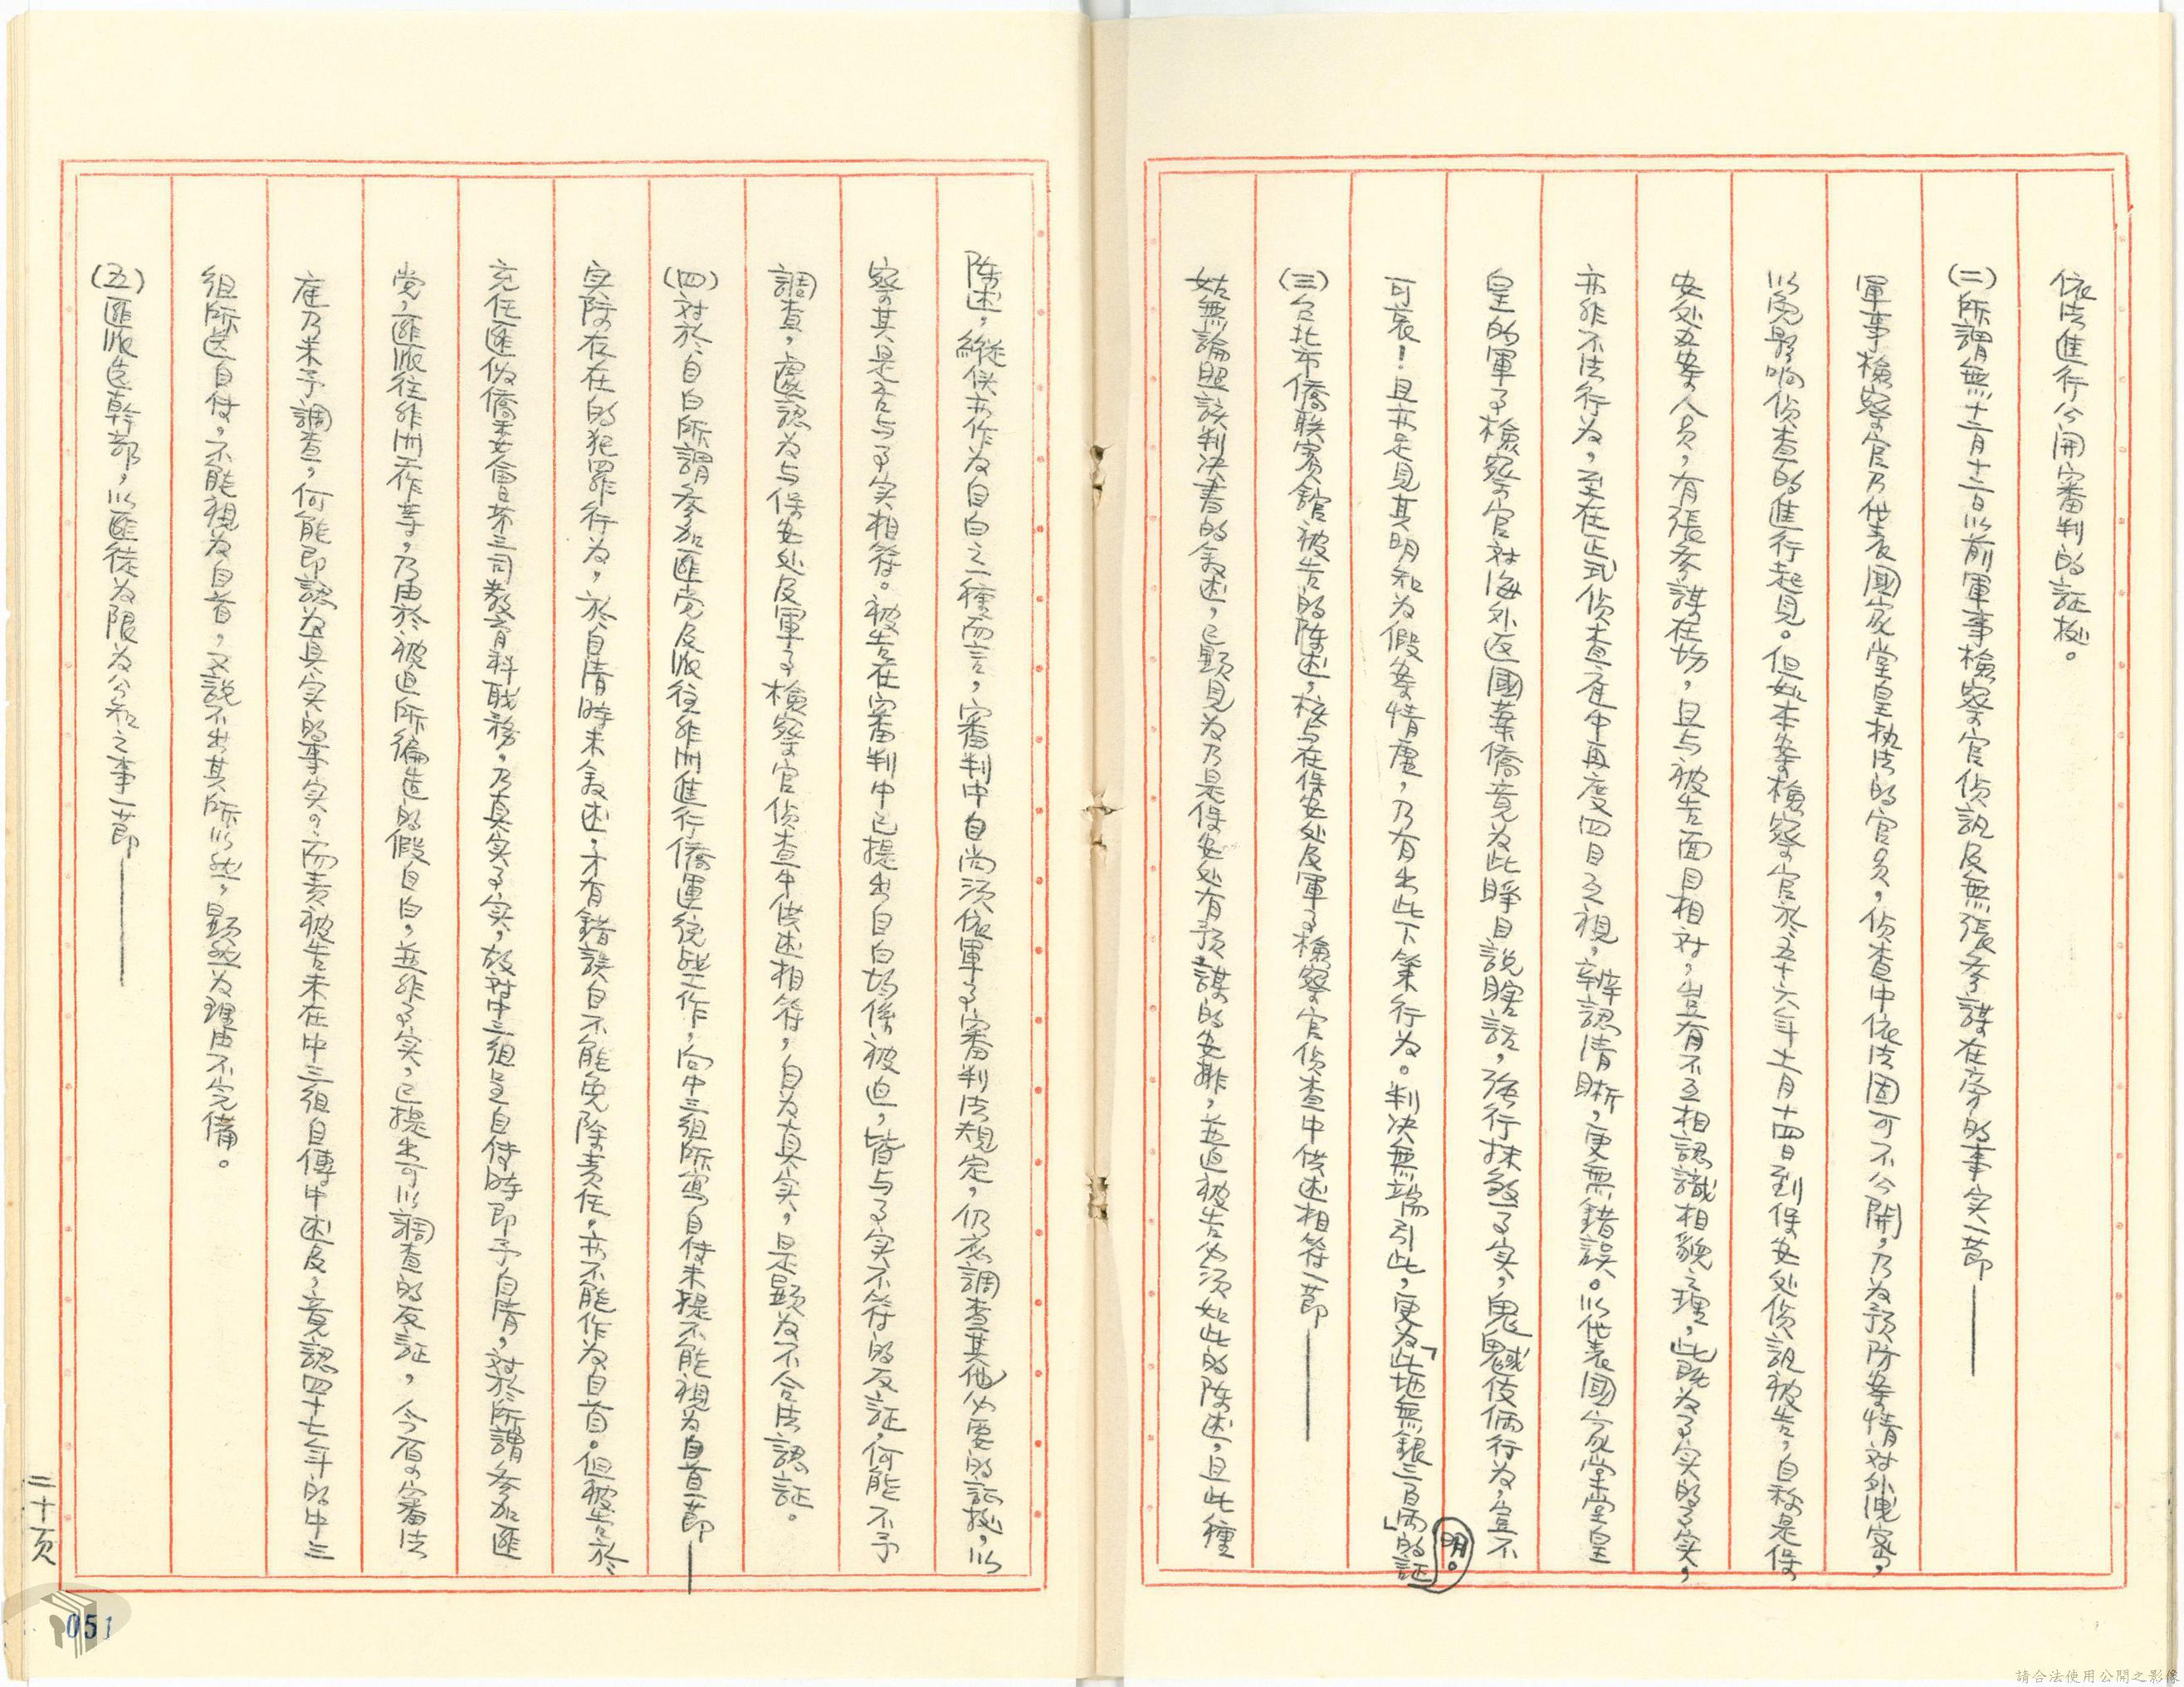 依法進行公開審判的証据。
(二)所謂無十一月十二日以前軍事檢察官偵訊及無張參謀在旁的事实一節——
軍事檢察官乃代表國家堂皇执法的官員，偵查中依法固可不公開，乃为預防案情对外洩密，
以免影响偵查的進行起見。但如本案檢察官於五十六年十一月十四日到保安处偵訊被告，自称是保
安处办案人员，有張參謀在場，且与被告面目相对，豈有不互相認識相貌之理，此既为事实的事实，
亦非不法行为，至在正式偵查庭中再度四目互視，辨認清晰，更無錯誤。以代表國家堂堂皇
皇的軍事檢察官对海外返國華僑竟为此睜目說瞎話，強行抹煞事实，鬼魊伎俩行为，豈不
可哀！且亦足見其明知为假案情虛，乃有出此下策行为。判决無端引此，更为「此地無銀三百両」的証
明。
(三)台北市僑联賓館被告的陈述，核与在保安处及軍事檢察官偵查中供述相符一節——
姑無論照該判决書的敘述，已顯見为乃是保安处有預謀的安排，並迫被告必須如此的陈述，且此種
陈述，縱使亦作为自白之一種而言，審判中自尚須依軍事審判法規定，仍应調查其他必要的証据，以
察其是否与事实相符。被告在審判中已提出自白均係被迫，皆与事实不符的反証，何能不予
調查，遽認为与保安处及軍事檢察官偵查中供述相符，自为真实，是顯为不合法認証。
(四)对於自白所謂參加匪党及派往非洲進行僑運統战工作，向中三組所寫自传未提不能視为自首一節——
实際存在的犯罪行为，於自清時未敘述，才有錯誤自不能免除責任，亦不能作为自首。但被告於
充任匪伪僑委会第三司教育科職務，乃真实事实，故对中三組呈自传時即予自清，对於所謂參加匪
党，匪派往非洲工作等，乃由於被迫所編造的假自白，並非事实，已提出可以調查的反証，今原審法
庭乃未予調查，何能即認为真实的事实。而責被告未在中三組自傳中述及，竟認四十七年的中三
組所送自传，不能視为自首，又說不出其所以然，顯然为理由不完備。
(五)匪派造幹部，以匪徒为限为公知之事一節——
二十頁
051
請合法使用公開之影像